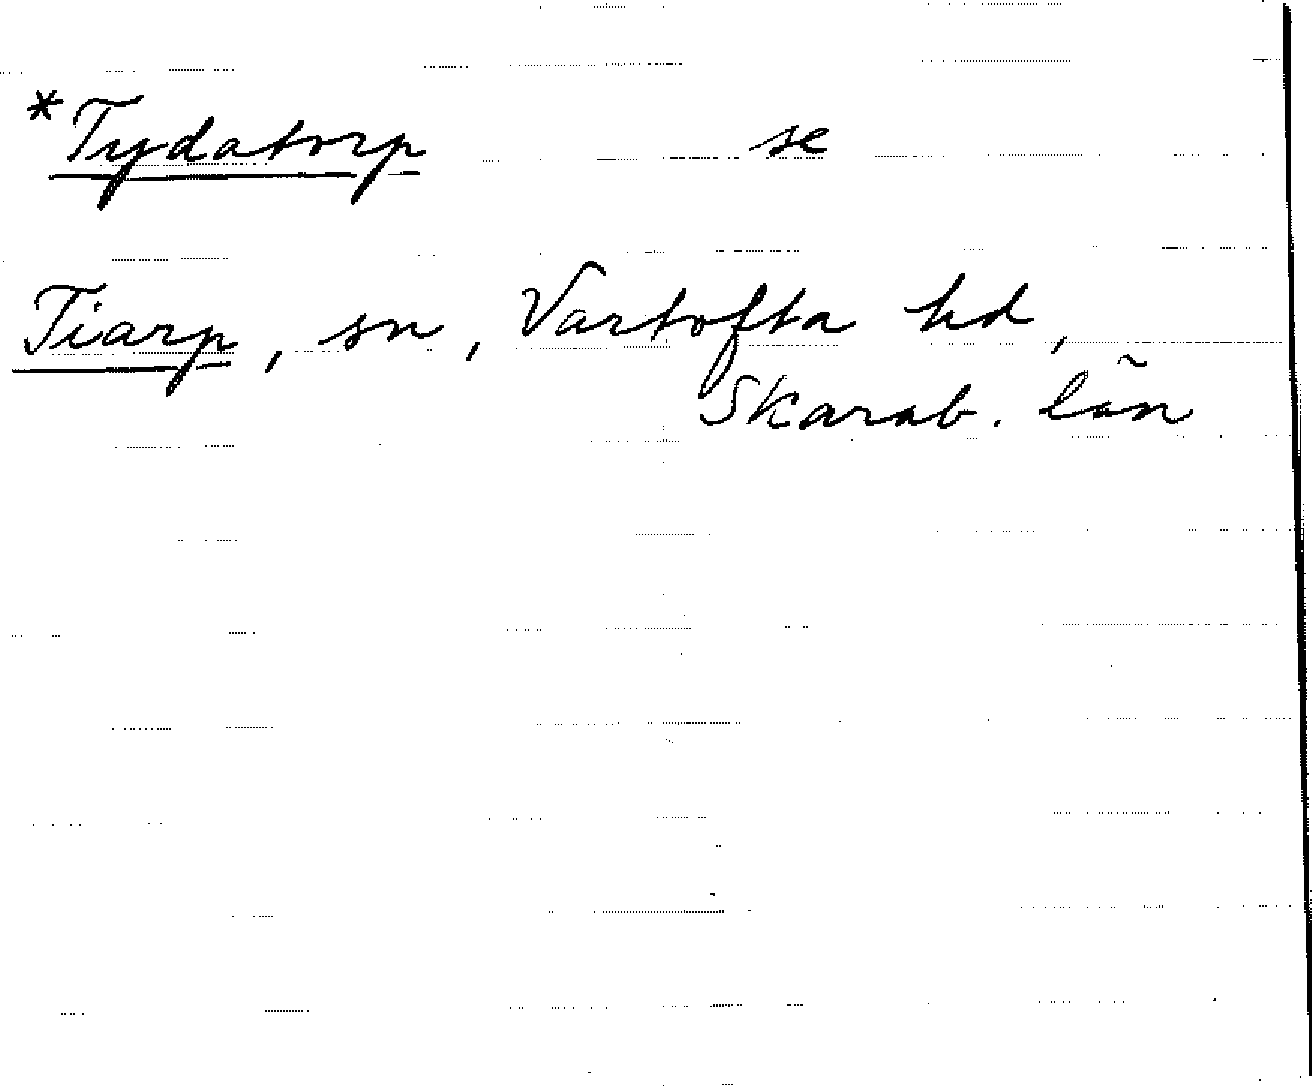 *Tydatorp se
Tiarp, sn, Vartofta hd,
Skarab. län